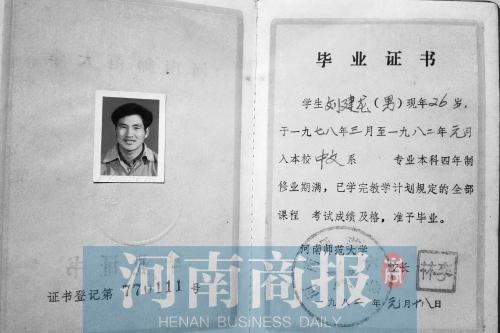 毕业证书
学生刘建龙（男）现年26岁，
于一九七八年三月至一九八二年元月
入本校中文系 专业本科四年制
修业期满，已学完教学计划规定的全部
课程 考试成绩及格，准予毕业。
河南师范大学
校长
一九八二年元月十八日
证书登记第770111号
河南商报
HENAN BUSINESS DAILY